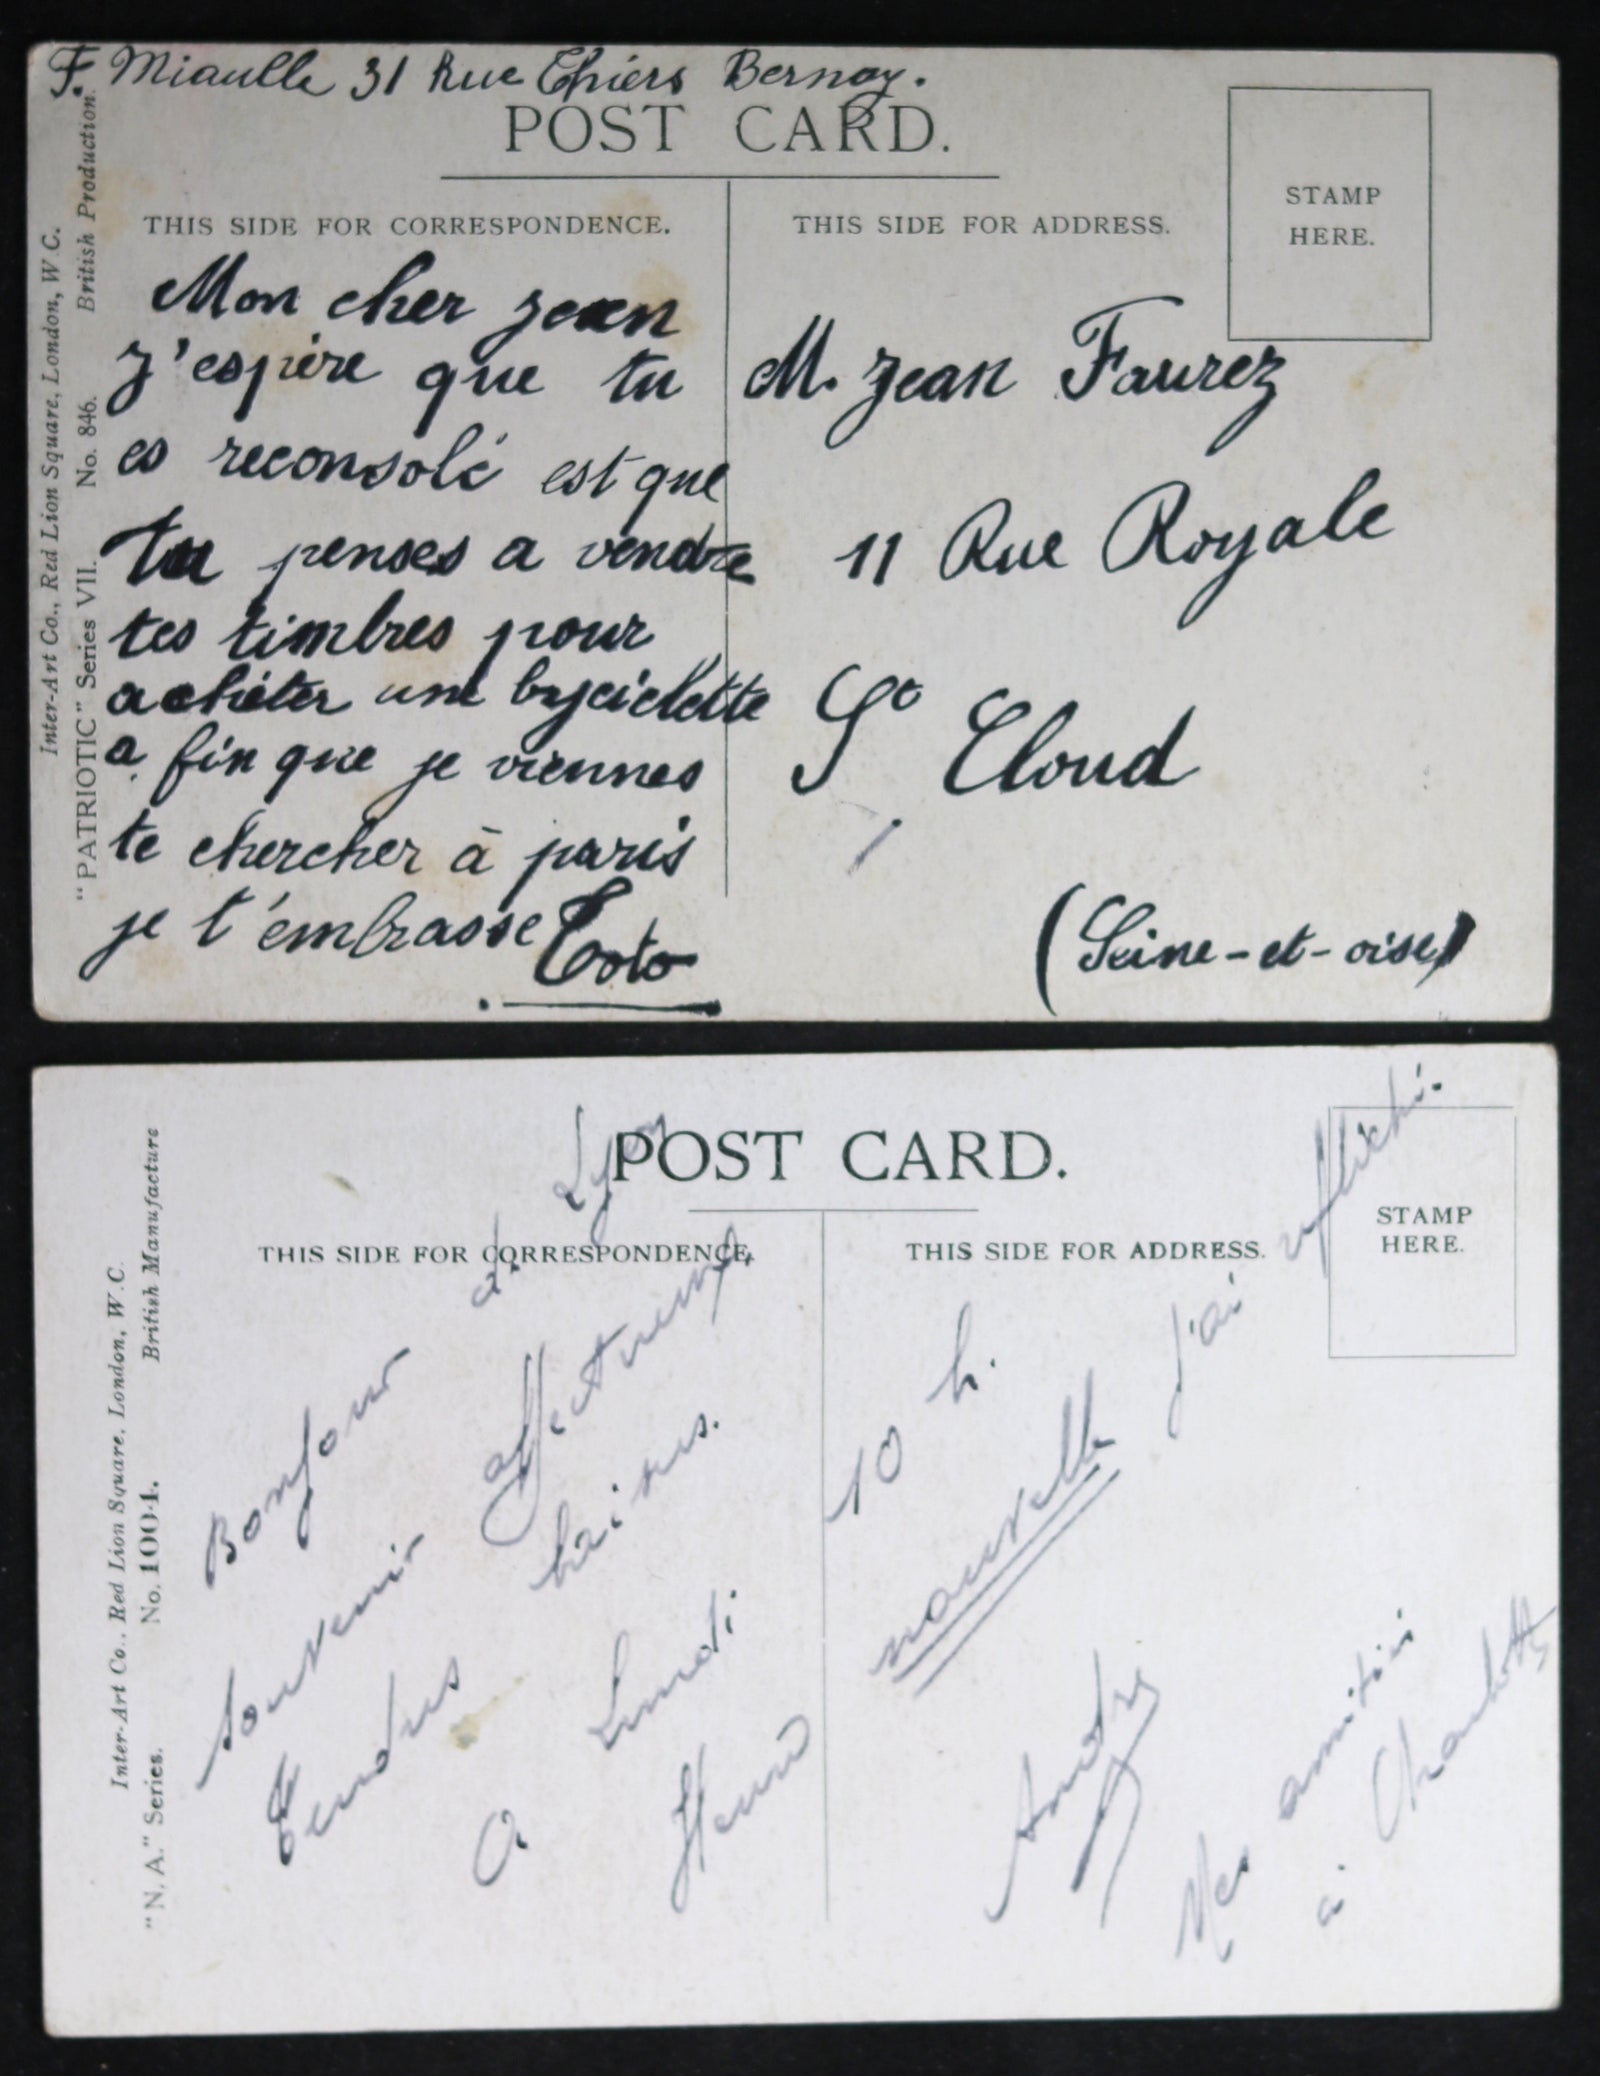 F. Miaulle 31 Rue Thiers Bernay.
POST CARD.
THIS SIDE FOR CORRESPONDENCE.
THIS SIDE FOR ADDRESS.
STAMP
HERE.
Inter-Art Co., Red Lion Square, London, W.C.
"PATRIOTIC" Series VII. No. 846. British Production.
Mon cher jean
J'espère que tu
es reconsolé est que
tu penses a vendre
tes timbres pour
acheter une byciclette
a fin que je viennes
te chercher à paris
je t'embrasse Toto
M. Jean Faurez
11 Rue Royale
St Cloud
(Seine-et-oise)
POST CARD.
THIS SIDE FOR CORRESPONDENCE.
THIS SIDE FOR ADDRESS.
STAMP
HERE.
Inter-Art Co., Red Lion Square, London, W.C.
"N. A." Series. No. 1004. British Manufacture
Bonjour de Lyon
Souvenir affectueux
Tendres baisers.
A Lundi
10 h.
nouvelle j'ai
André
Mes amitiés
à Charlotte